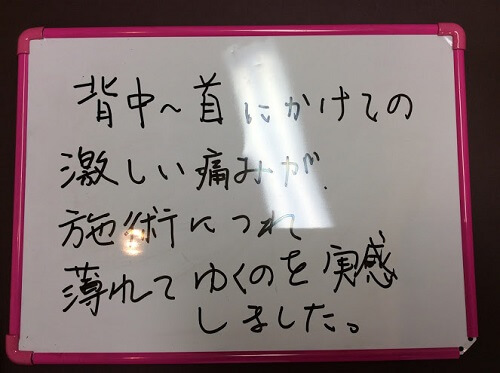 背中～首にかけての
激しい痛みが、
施術につれ
薄れてゆくのを実感
しました。